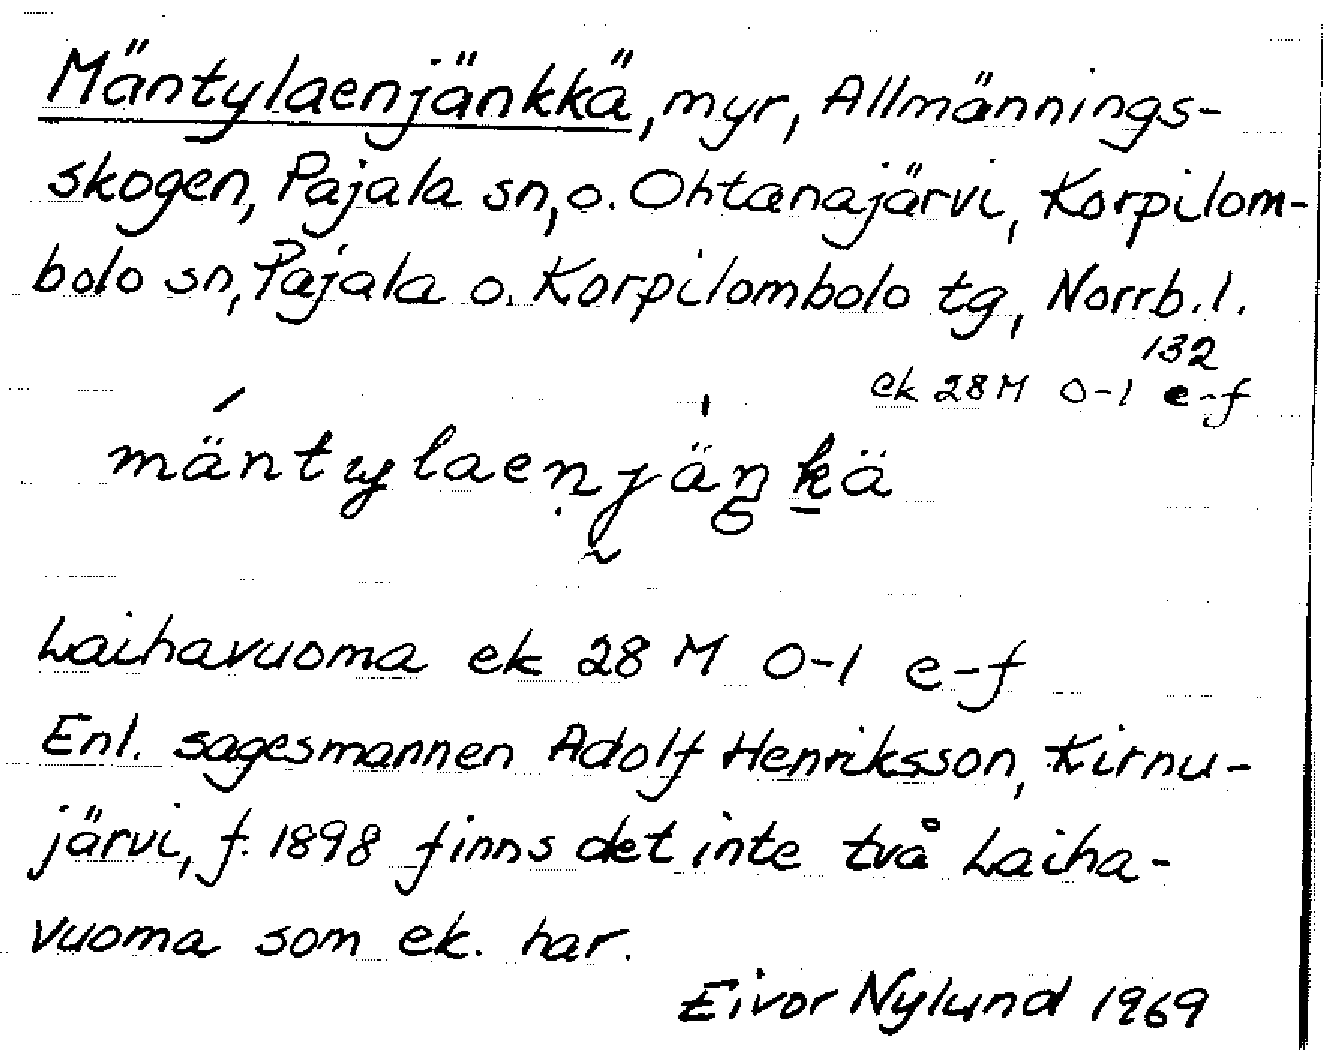 Mäntylaenjänkkä, myr, Allmännings-
skogen, Pajala sn, o. Ohtanajärvi, Korpilom-
bolo sn, Pajala o. Korpilombolo tg, Norrb. l.
132
ek 28M 0-1 e-f
mäntylaenjäŋkä
Laihavuoma ek 28 M 0-1 e-f
Enl. sagesmannen Adolf Henriksson, Kirnu-
järvi, f. 1898 finns det inte två Laiha-
vuoma som ek. har.
Eivor Nylund 1969